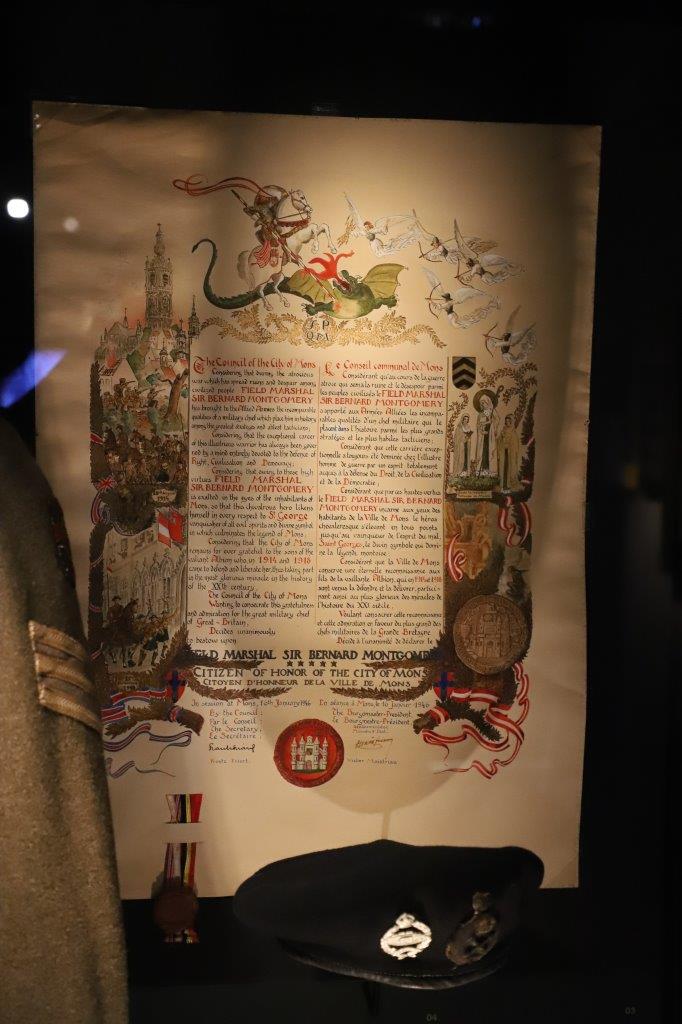 S.P.
Q.D.M.
The Council of the City of Mons
Considering that during the atrocious
war which has spread ruins and despair among
civilized people FIELD MARSHAL
SIR BERNARD MONTGOMERY
has brought to the Allied Armies the incomparable
qualities of a military chief which place him in history
among the greatest strategs and ablest tacticians;
Considering that the exceptional career
of this illustrious warrior has always been gover
ned by a mind entirely devoted to the defence of
Right, Civilisation and Democracy;
Considering that owing to these high
virtues FIELD MARSHAL
SIR BERNARD MONTGOMERY
is exalted in the eyes of the inhabitants of
Mons, so that this chivalrous hero likens
himself in every respect to St George
vanquisher of all evil spirits and divine symbol
which culminates the legend of Mons;
Considering that the City of Mons
remains for ever grateful to the sons of the
valiant Albion who in 1914 and 1918
came to defend and liberate her, thus taking part
in the most glorious miracle in the history
of the XXth century,
The Council of the City of Mons
Wanting to consecrate this gratefulness
and admiration for the great military chief
of Great-Britain,
Decides unanimously
to bestow upon
Le Conseil communal de Mons
Considérant qu'au cours de la guerre
atroce qui sema la ruine et le désespoir parmi
les peuples civilisés le FIELD MARSHAL
SIR BERNARD MONTGOMERY
a apporté aux Armées Alliées les incompa-
rables qualités d'un chef militaire qui le
placent dans l'histoire parmi les plus grands
stratèges et les plus habiles tacticiens;
Considérant que cette carrière excep-
tionnelle a toujours été dominée chez l'illustre
homme de guerre par un esprit totalement
acquis à la défense du Droit, de la Civilisation
et de la Démocratie;
Considérant que par ces hautes vertus
le FIELD MARSHAL SIR BERNARD
MONTGOMERY incarne aux yeux des
habitants de la Ville de Mons le héros
chevaleresque s'élevant en tous points
jusqu'au vainqueur de l'esprit du mal,
Saint Georges, le divin symbole qui domi-
ne la légende montoise;
Considérant que la Ville de Mons
conserve une éternelle reconnaissance aux
fils de la vaillante Albion, qui en 1914 et 1918
vinrent la défendre et la délivrer, partici-
pant ainsi au plus glorieux des miracles de
l'histoire du XXe siècle,
Voulant consacrer cette reconnaissance
et cette admiration en faveur du plus grand des
chefs militaires de la Grande Bretagne
Décide à l'unanimité de déclarer le
FIELD MARSHAL SIR BERNARD MONTGOMERY
CITIZEN OF HONOR OF THE CITY OF MONS
CITOYEN D'HONNEUR DE LA VILLE DE MONS
In session at Mons, 10th January 1946
En séance à Mons, le 10 Janvier 1946
By the Council:
Par le Conseil:
The Secretary,
Le Secrétaire:
The Burgomaster-President
Le Bourgmestre-Président
Victor Maistriau
04
03